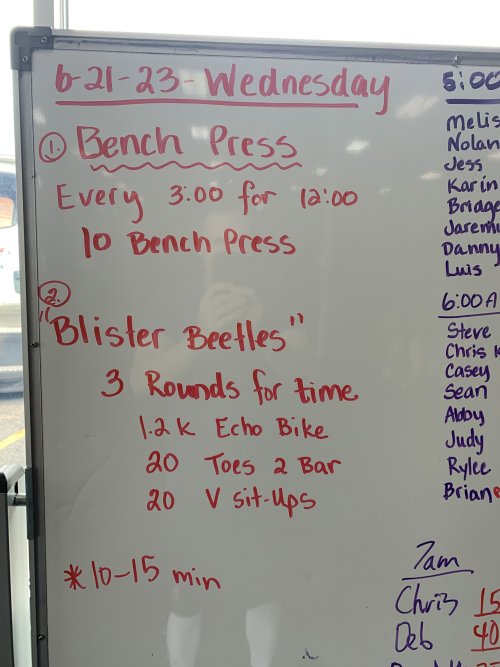 6-21-23-Wednesday
1. Bench Press
Every 3:00 for 12:00
10 Bench Press
2.
"Blister Beetles"
3 Rounds for time
1.2K Echo Bike
20 Toes 2 Bar
20 V sit-Ups
*10-15 min
5:00
Melis
Nolan
Jess
Karin
Bridge
Jaremi
Danny
Luis
6:00 A
Steve
Chris K
Casey
Sean
Abby
Judy
Rylee
Brian
7am
Chris 15
Deb 40